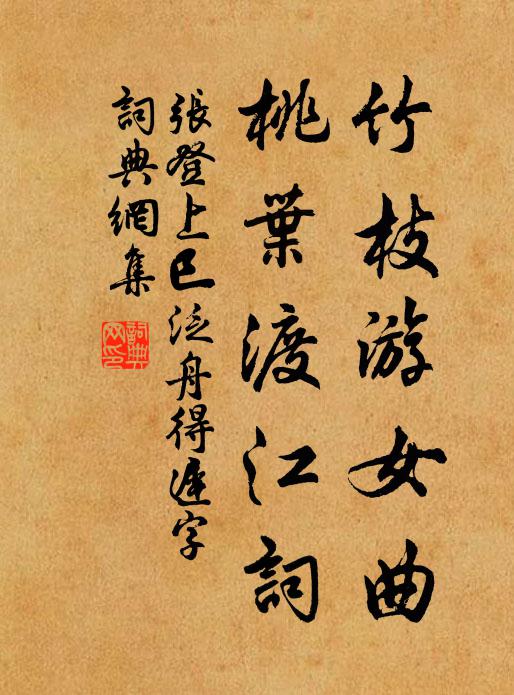 竹枝游女曲
桃葉渡江詞
張登上巳泛舟得遲字
詞典網集
詞典
网印